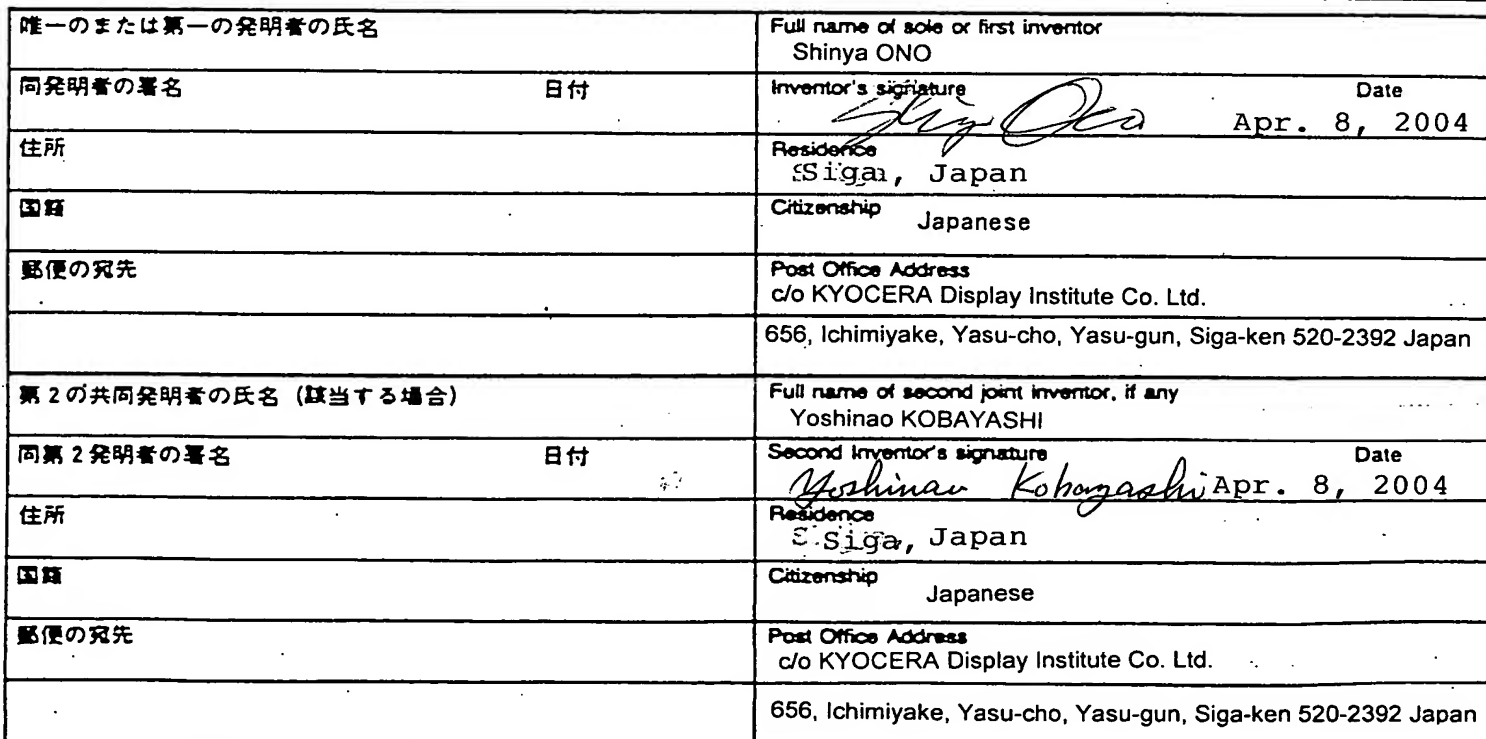 唯一のまたは第一の発明者の氏名
Full name of sole or first inventor
Shinya ONO
同発明者の署名 日付
Inventor's signature Date
Apr. 8, 2004
住所
Residence
Siga, Japan
国籍
Citizenship
Japanese
郵便の宛先
Post Office Address
c/o KYOCERA Display Institute Co. Ltd.
656, Ichimiyake, Yasu-cho, Yasu-gun, Siga-ken 520-2392 Japan
第2の共同発明者の氏名 (該当する場合)
Full name of second joint inventor, if any
Yoshinao KOBAYASHI
同第2発明者の署名 日付
Second Inventor's signature Date
Yoshinao Kobayashi Apr. 8, 2004
住所
Residence
Siga, Japan
国籍
Citizenship
Japanese
郵便の宛先
Post Office Address
c/o KYOCERA Display Institute Co. Ltd.
656, Ichimiyake, Yasu-cho, Yasu-gun, Siga-ken 520-2392 Japan